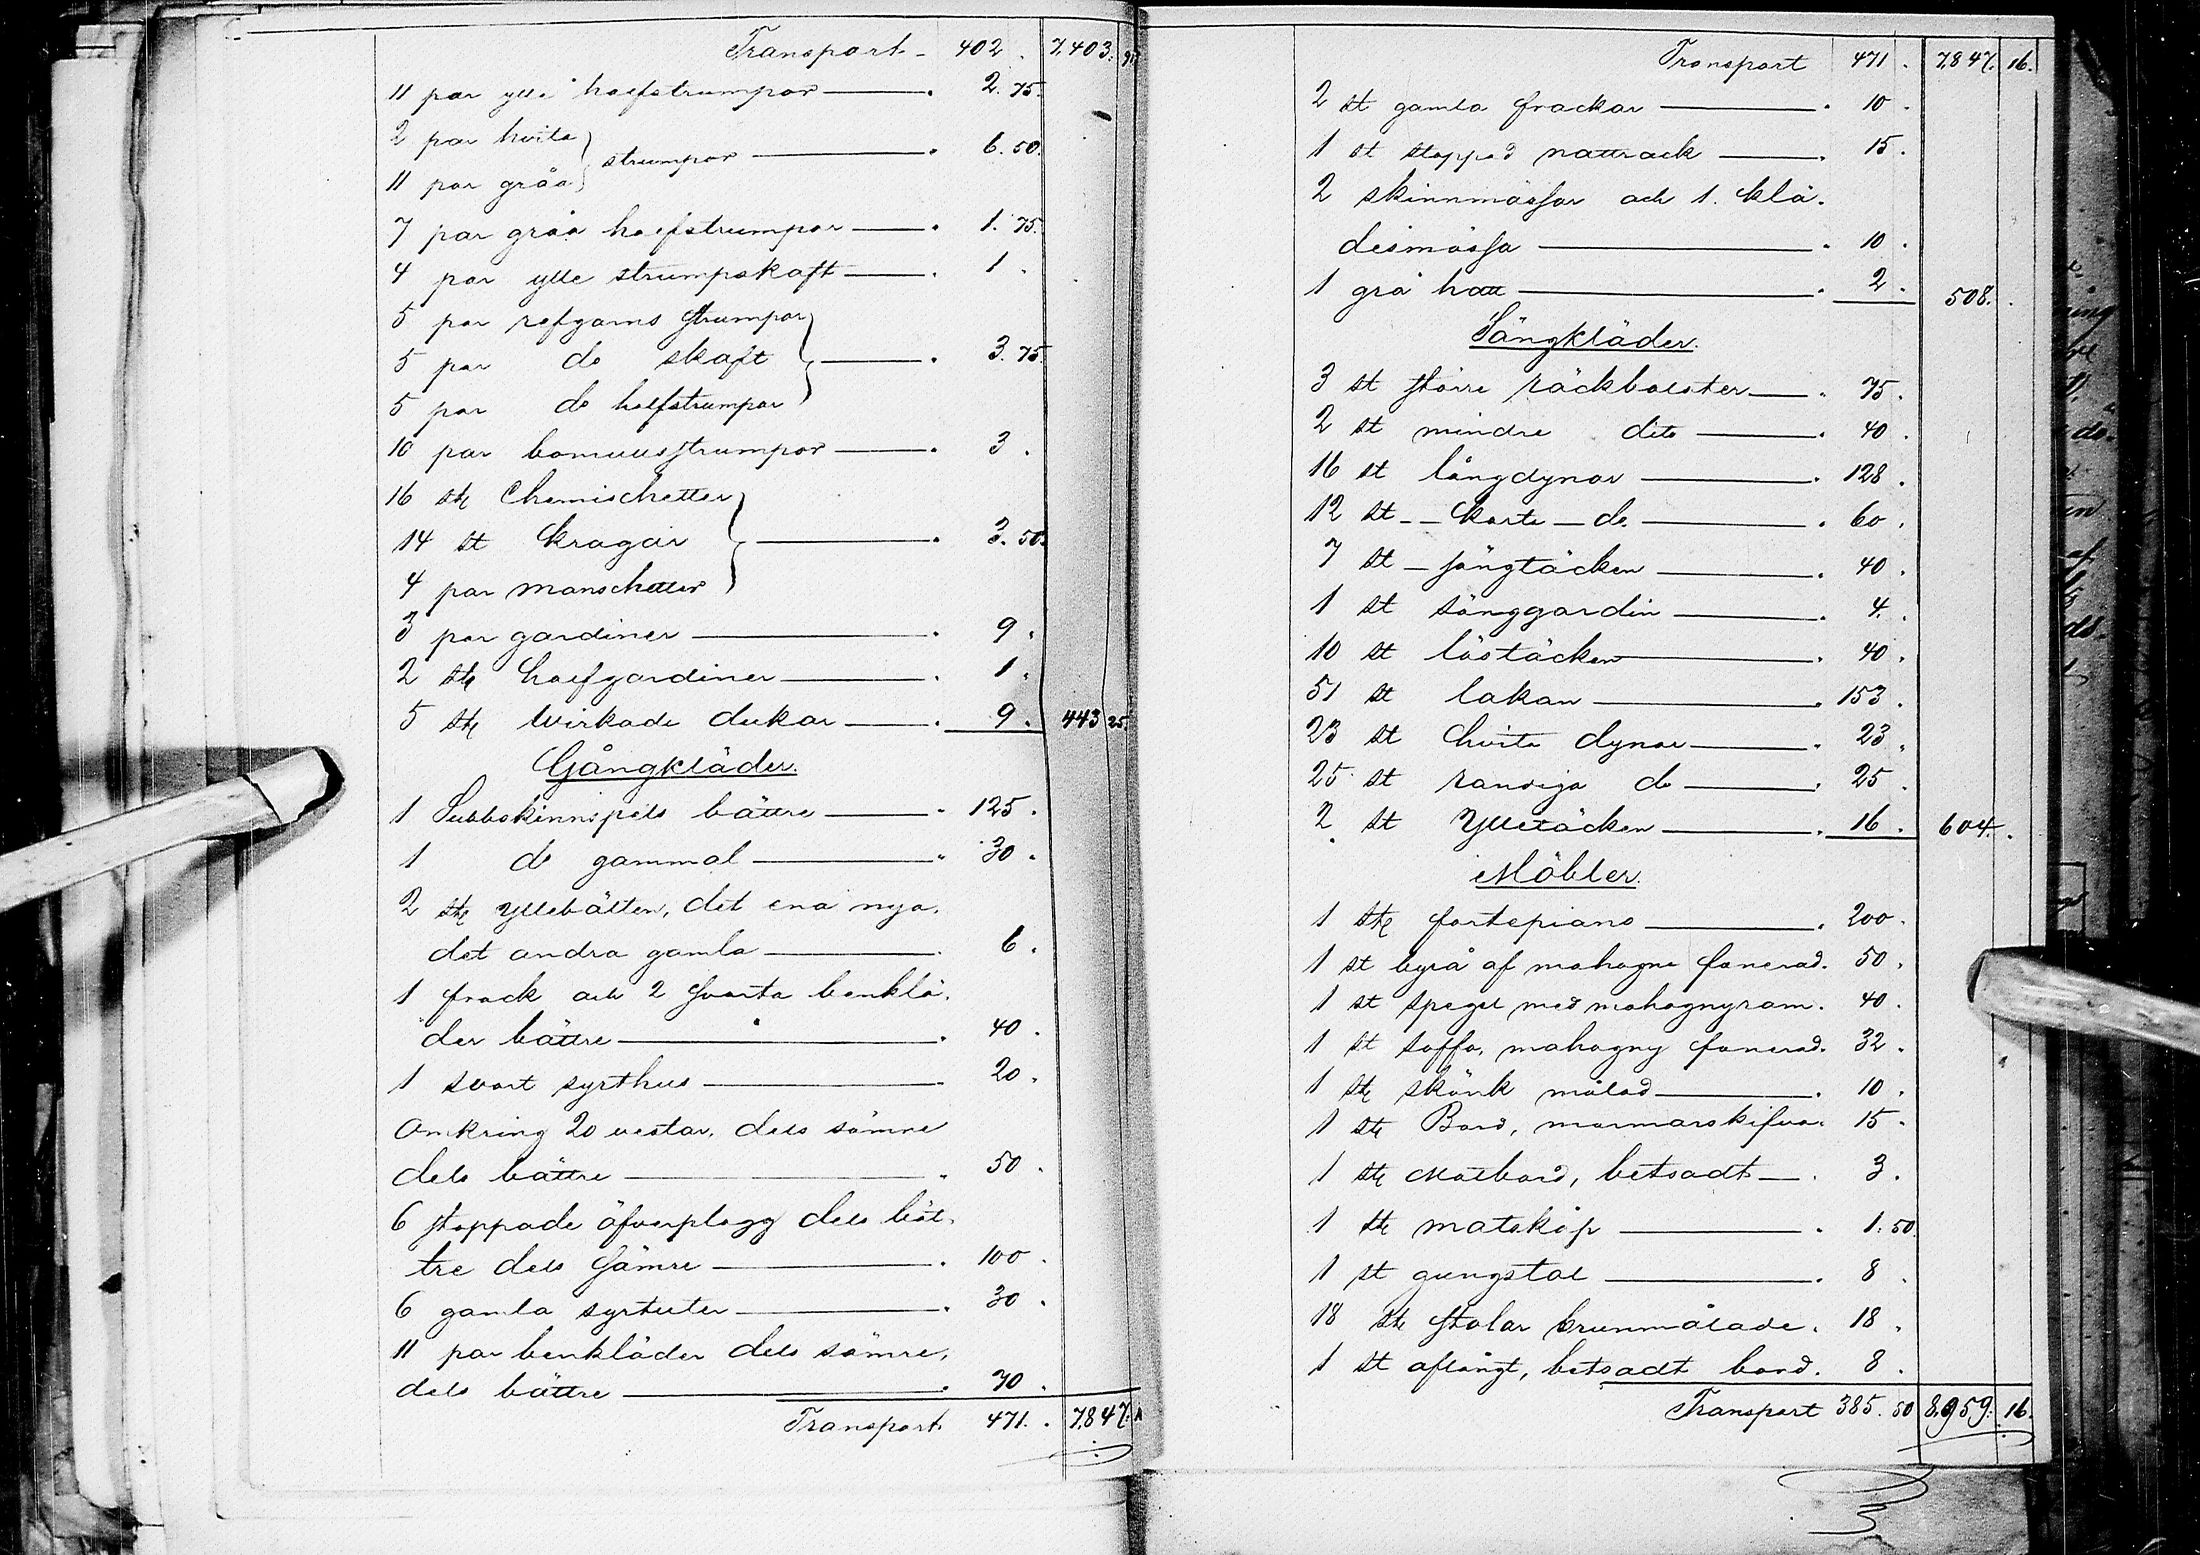 Transport 402. 7,403. 91
11 par ylle halfstrumpor 2.75.
2 par hvita
strumpor 6.50.
11 par gråa
7 par gråa halfstrumpor 1.75.
4 par ylle strumpskaft 1.
5 par refgarns strumpor
5 par do skaft 3.75.
5 par do halfstrumpor
10 par bomullsstrumpor 3.
16 stk Chemischetter
14 st kragar 3.50.
4 par manschetter
3 par gardiner 9.
2 stk halfgardiner 1.
5 stk Wirkade dukar 9. 443 25.
Gångkläder.
1 Subbskinnspels bättre 125.
1 do gammal 30.
2 stk Yllebälten, det ena nya,
det andra gamla 6.
1 frack och 2 svarta benklä-
der bättre 40.
1 svart syrthus 20.
Omkring 20 vestar, dels sämre
dels bättre 50.
6 stoppade öfverplagg dels bät-
tre dels sämre 100.
6 gamla syrtuter 30.
11 par benkläder dels sämre,
dels bättre 70.
Transport 471. 7,847. 16
Transport 471. 7,847. 16.
2 st gamla frackar 10.
1 st stoppad nattrack 15.
2 skinnmössor och 1. klä-
desmössa 10.
1 grå hatt 2. 508.
Sängkläder.
3 st större räckbolster 75.
2 st mindre dito 40.
16 st långdynor 128.
12 st korta do 60.
7 st sängtäcken 40.
1 st sänggardin 4.
10 st löstäcken 40.
51 st lakan 153.
23 st hvita dynor 23.
25 st randiga do 25.
2 st Ylletäcken 16. 604.
Möbler.
1 stk fortepiano 200.
1 st byrå af mahogne fanerad. 50.
1 st spegel med mahognyram. 40.
1 st soffa, mahogny fanerad. 32.
1 stk skänk målad 10.
1 stk Bord, marmorskifva. 15.
1 stk Matbord, betsadt 3.
1 stk matskåp 1.50.
1 st gungstol 8.
18 stk stolar brunmålade. 18.
1 st aflångt, betsadt bord. 8.
Transport 385.50 8,959. 16.